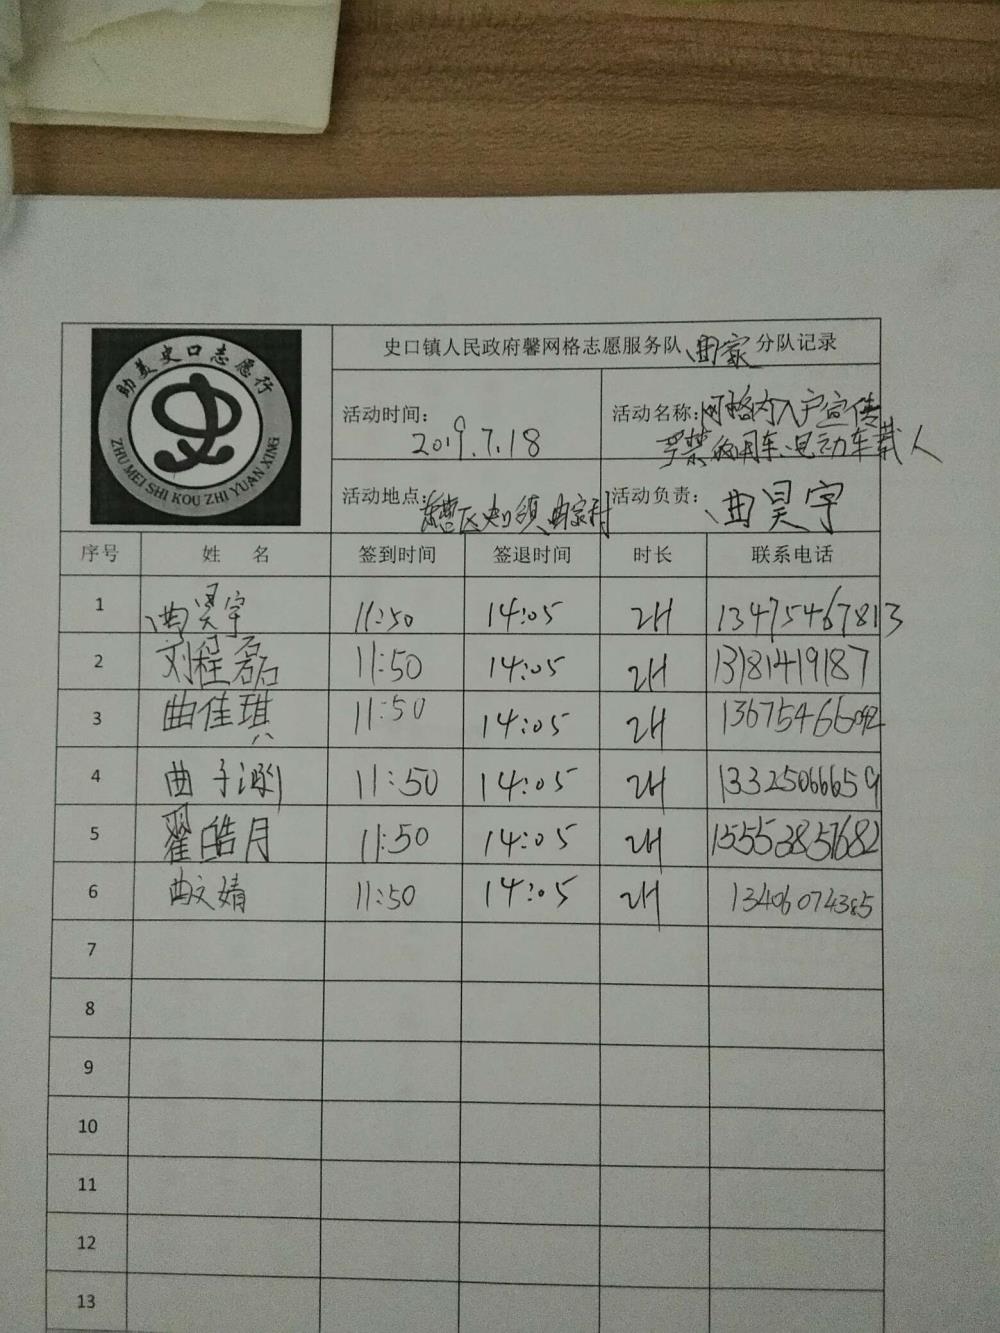 助美史口志愿行
ZHU MEI SHI KOU ZHI YUAN XING
史口镇人民政府馨网格志愿服务队 曲家 分队记录
活动时间： 2019.7.18
活动名称： 网格内入户宣传
严禁 农用车、电动车载人
活动地点： 东营区史口镇曲家村
活动负责： 曲昊宇
序号 姓 名 签到时间 签退时间 时长 联系电话
1 曲昊宇 11:50 14:05 2H 13475467813
2 刘程磊 11:50 14:05 2H 13181419187
3 曲佳琪 11:50 14:05 2H 13675466092
4 曲子 11:50 14:05 2H 13325066659
5 翟皓月 11:50 14:05 2H 15553857682
6 曲文婧 11:50 14:05 2H 13406074385
7
8
9
10
11
12
13